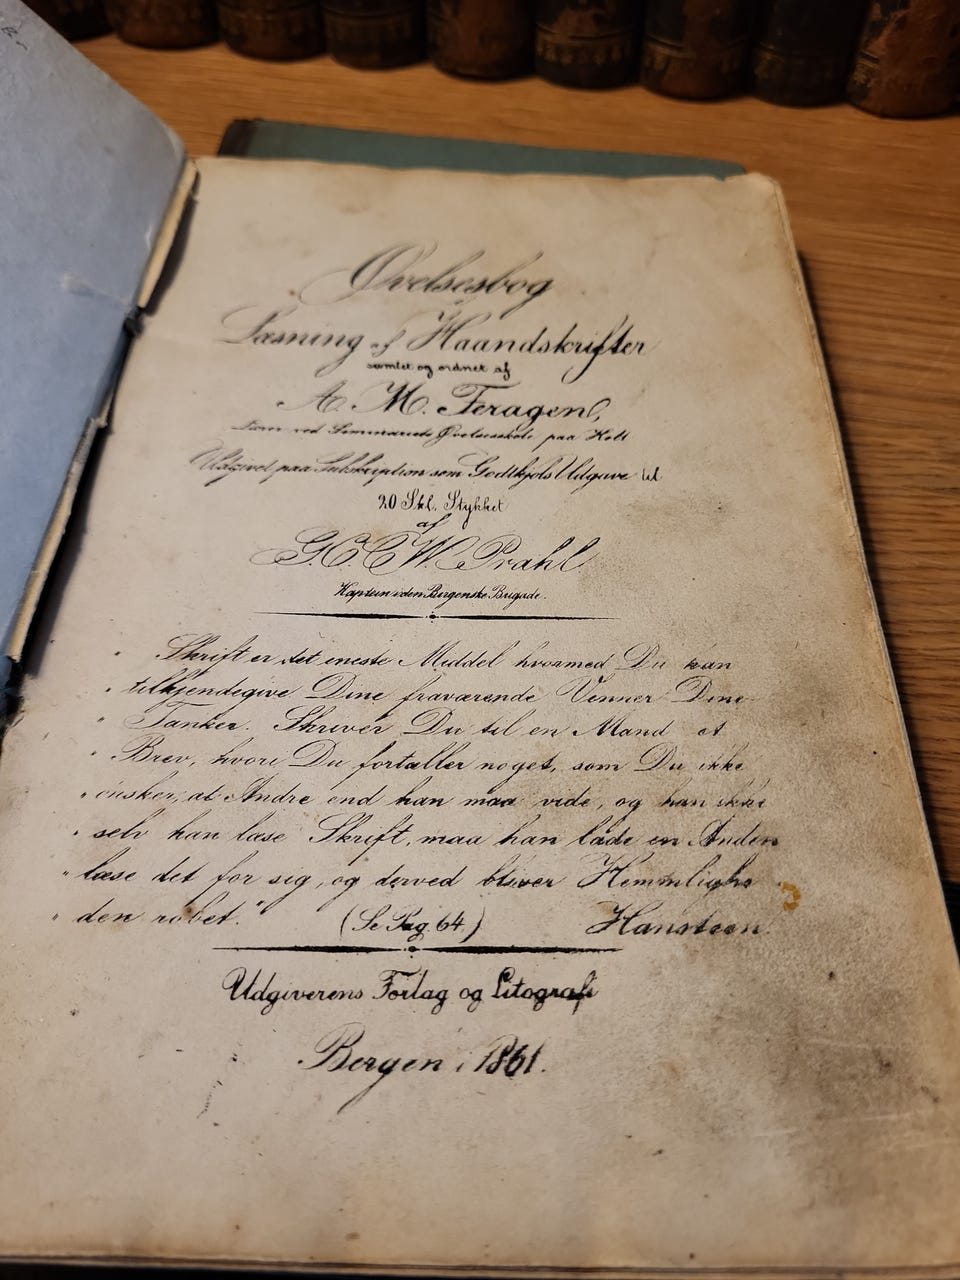 Øvelsesbog
i
Læsning af Haandskrifter
samlet og ordnet af
A. M. Feragen,
Lærer ved Seminariets Øvelsesskole paa Holt
Udgivet paa Subskription som Godtkjøbs Udgave til
20 Skl. Stykket
af
G. E. C. W. Prahl
Kaptein i den Bergenske Brigade.
" Skrift er det eneste Middel hvormed Du kan
" tilkjendegive Dine fraværende Venner Dine
" Tanker. Skriver Du til en Mand et
" Brev, hvori Du fortæller noget, som Du ikke
" ønsker, at Andre end han maa vide, og han ikke
" selv kan læse Skrift, maa han lade en Anden
" læse det for sig, og derved bliver Hemmelighe
" den røbet." (Se Pag. 64.) Hansteen.
Udgiverens Forlag og Litografi
Bergen i 1861.